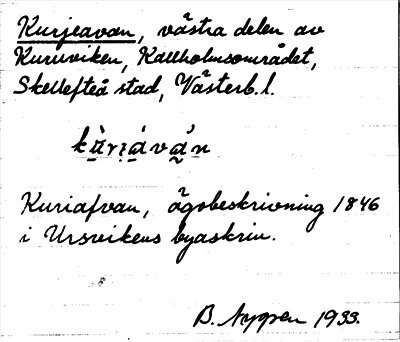 Kurjeavan, västra delen av
Kuruviken, Kallholmsområdet,
Skellefteå stad, Västerb. l.
Kuriafvan, ägobeskrivning 1846
i Ursvikens byaskrin.
B. Nygren 1933.